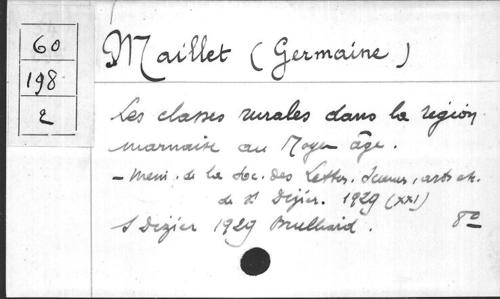 60
198
2
Maillet (Germaine)
Les classes rurales dans la région
marnaise au Moyen âge.
- Mém. de la Soc. des Lettres, Sciences, arts etc.
de St Dizier. 1929 (XXI)
St Dizier 1929 Brulliard. 8º